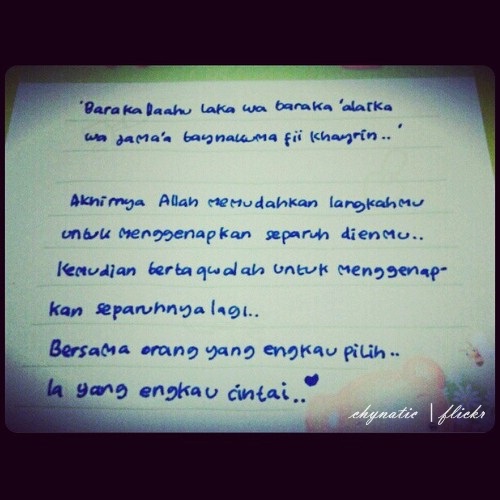 'Barakallaahu laka wa baraka 'alaika
wa jama'a baynakuma fii khayrin..'
Akhirnya Allah memudahkan langkahmu
untuk menggenapkan separuh dienmu..
Kemudian bertaqwalah untuk menggenap-
kan separuhnya lagi..
Bersama orang yang engkau pilih..
Ia yang engkau cintai..
chynatic | flickr